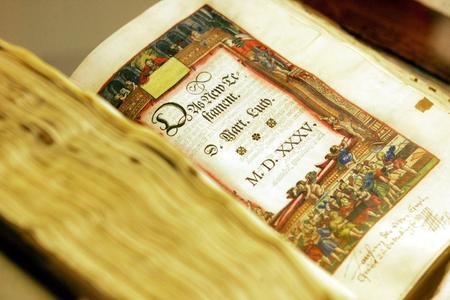 DAs New Te-
stament.
D. Mart. Luth.
M. D. XXXV.